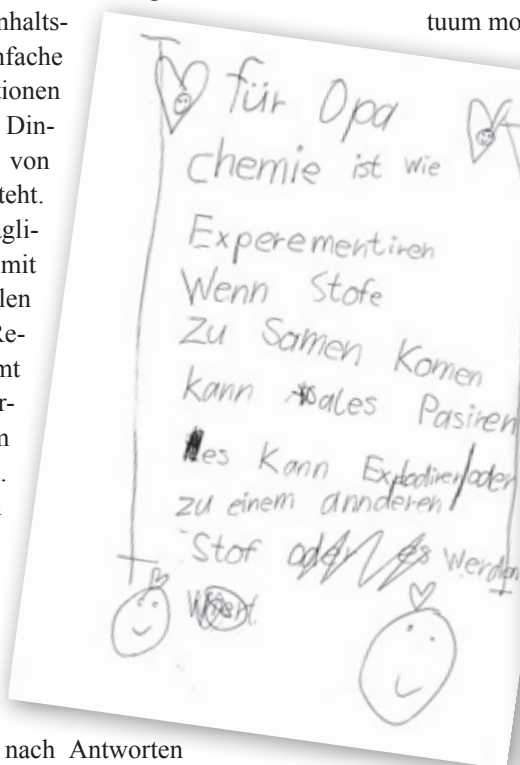 nhalts-
nfache
tionen
Din-
von
teht.
gli-
mit
len
Re-
mt
r-
n
.
tuum mo
für Opa
chemie ist wie
Experementiren
Wenn Stofe
zu Samen Komen
kann ales Pasiren
es Kann Explodiren/oder
zu einem annderen
Stof oder es werden
nach Antworten